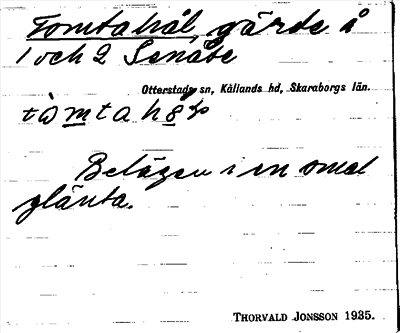 Tomtahål, gärde å
1 och 2 Senåte
Otterstads sn, Kållands hd, Skaraborgs län.
Belägen i en smal
glänta.
THORVALD JONSSON 1935.